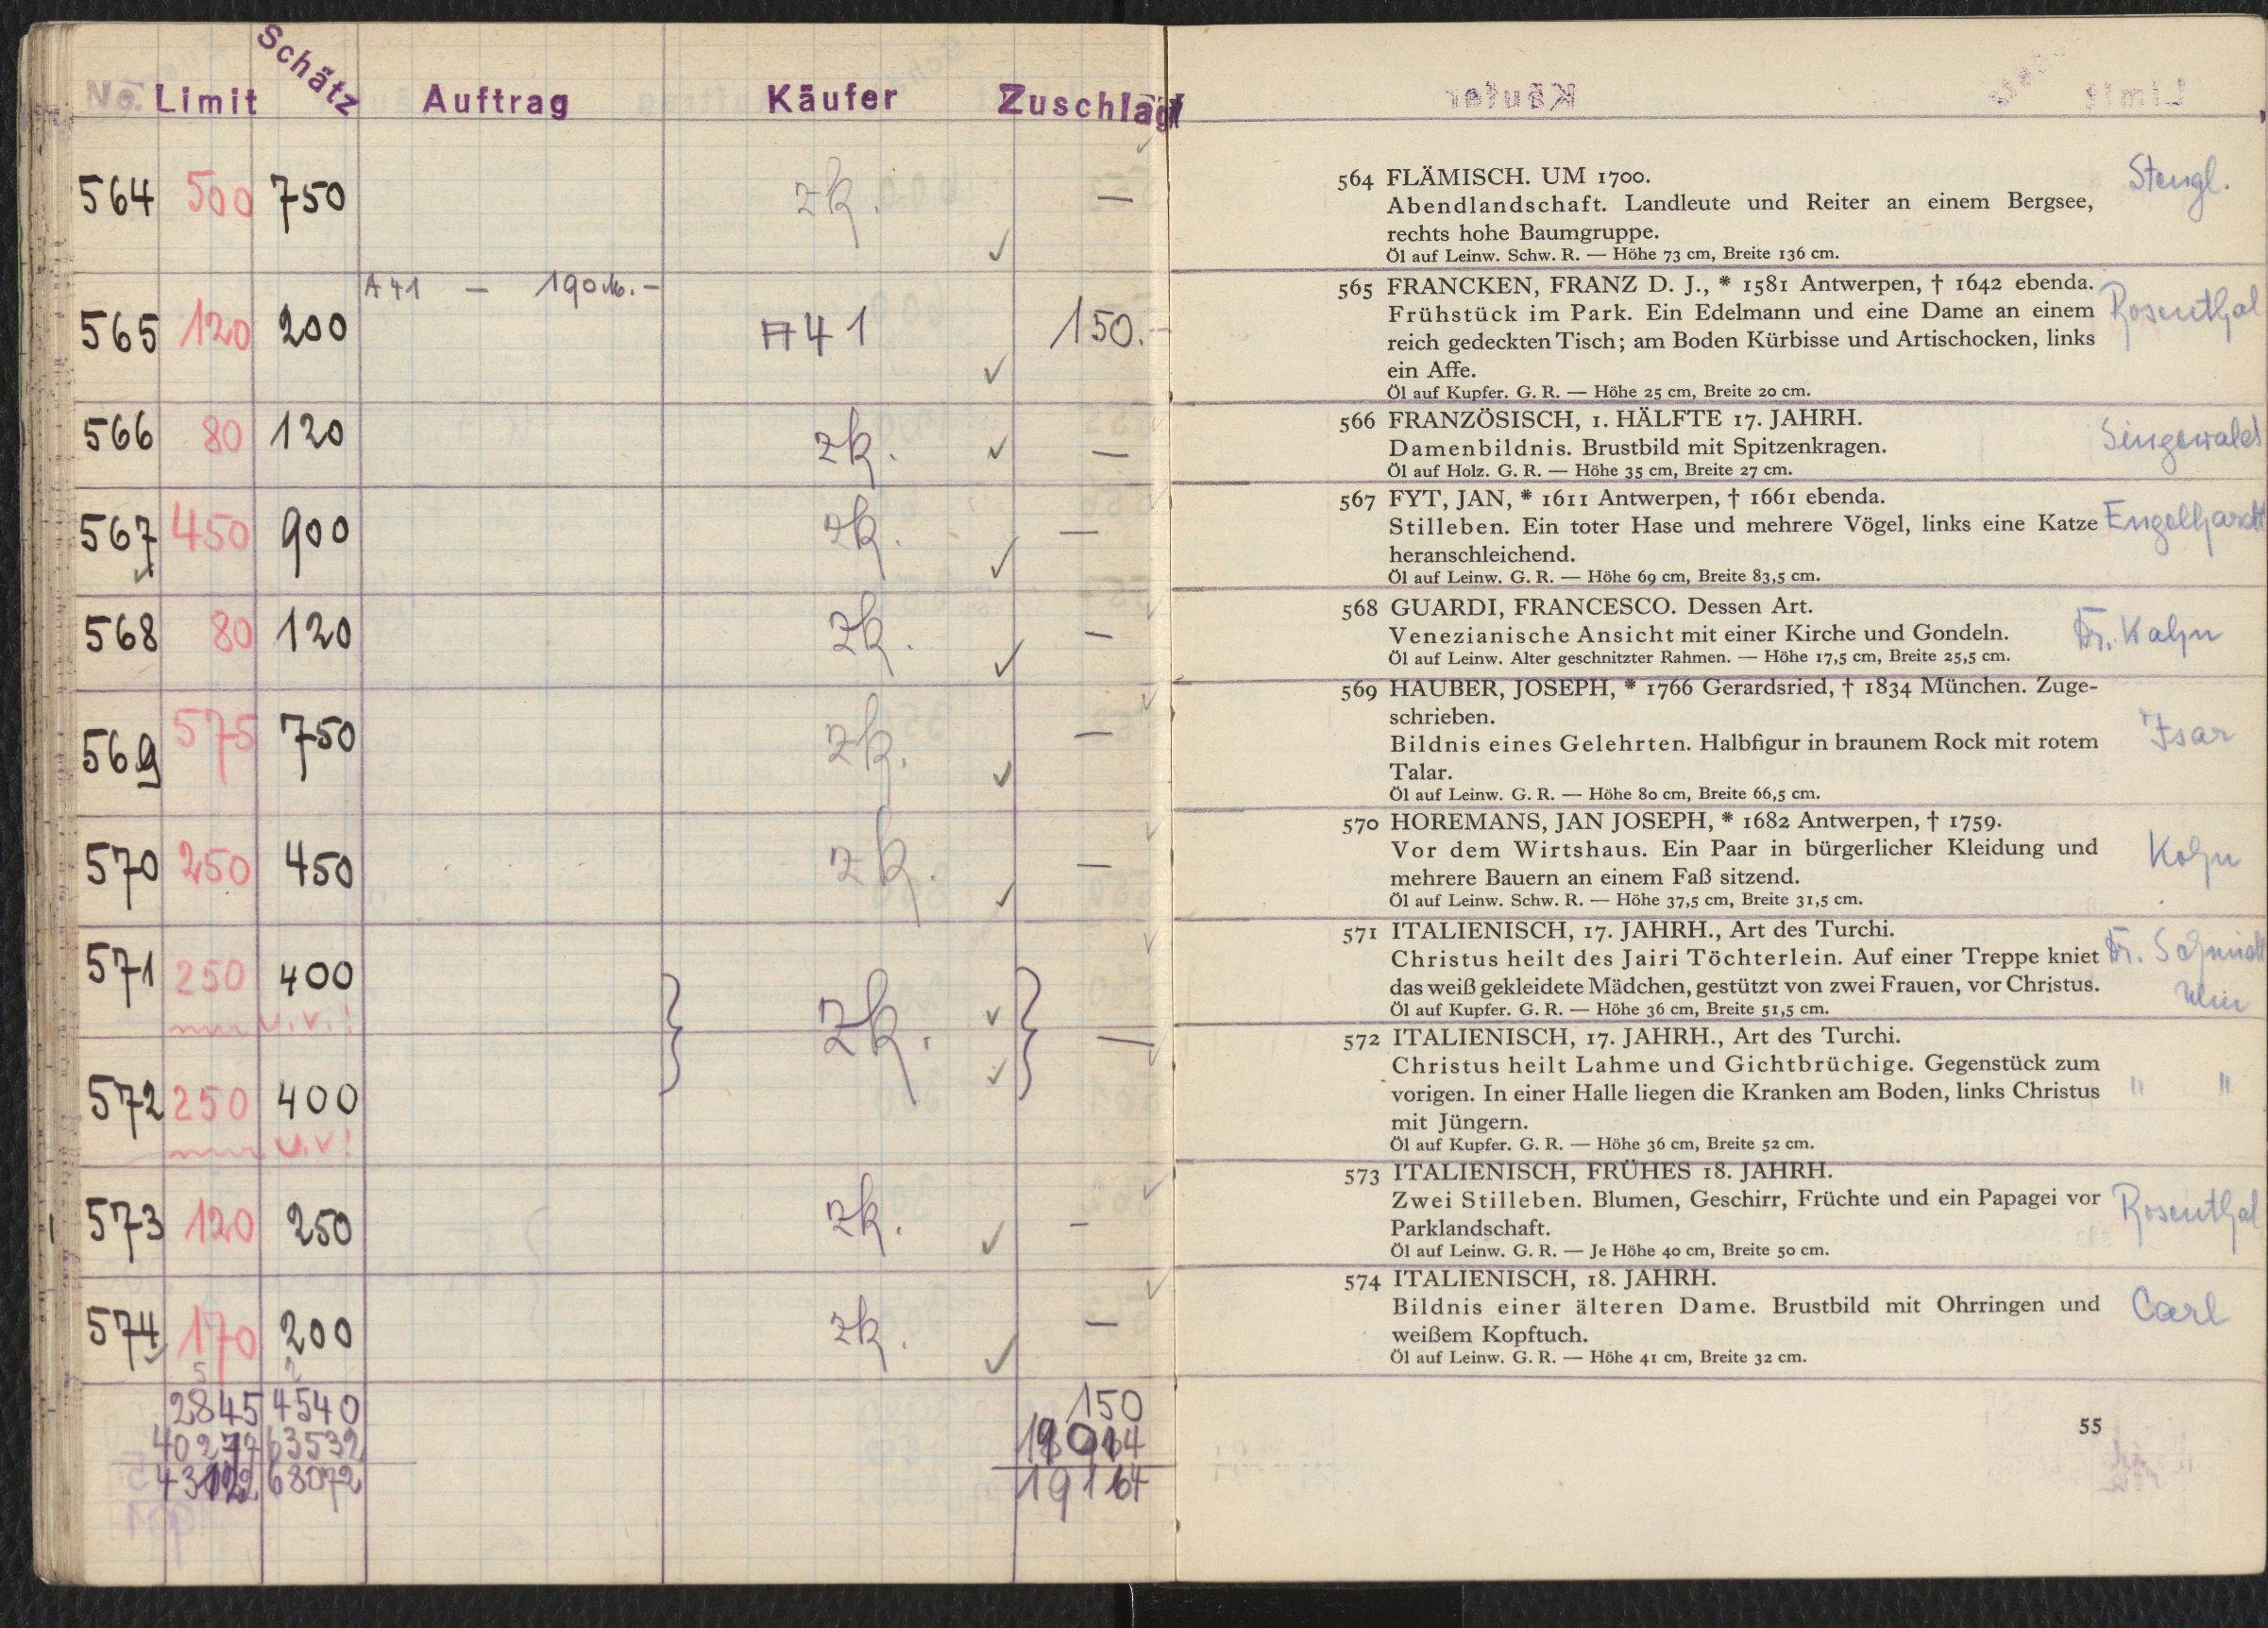 No. Limit Schätz Auftrag Käufer Zuschlag
564 500 750 zk. —
A 41 — 190 M. —
565 120 200 A 41 150.-
566 80 120 zk. —
567 450 900 zk. —
568 80 120 zk. —
569 575 750 zk. —
570 250 450 zk. —
571 250 400
nur u.v.!
zk. —
572 250 400
nur u.v!
573 120 250 zk. -
574 170 200 zk. —
5 2
2845 4540 150
63532
68072
564 FLÄMISCH. UM 1700. Stengl.
Abendlandschaft. Landleute und Reiter an einem Bergsee,
rechts hohe Baumgruppe.
Öl auf Leinw. Schw. R. — Höhe 73 cm, Breite 136 cm.
565 FRANCKEN, FRANZ D. J., * 1581 Antwerpen, † 1642 ebenda. Rosenthal
Frühstück im Park. Ein Edelmann und eine Dame an einem
reich gedeckten Tisch; am Boden Kürbisse und Artischocken, links
ein Affe.
Öl auf Kupfer. G. R. — Höhe 25 cm, Breite 20 cm.
566 FRANZÖSISCH, 1. HÄLFTE 17. JAHRH. Singewald
Damenbildnis. Brustbild mit Spitzenkragen.
Öl auf Holz. G. R. — Höhe 35 cm, Breite 27 cm.
567 FYT, JAN, * 1611 Antwerpen, † 1661 ebenda.
Stilleben. Ein toter Hase und mehrere Vögel, links eine Katze Engelhardt
heranschleichend.
Öl auf Leinw. G. R. — Höhe 69 cm, Breite 83,5 cm.
568 GUARDI, FRANCESCO. Dessen Art.
Venezianische Ansicht mit einer Kirche und Gondeln. Dr. Kahn
Öl auf Leinw. Alter geschnitzter Rahmen. — Höhe 17,5 cm, Breite 25,5 cm.
569 HAUBER, JOSEPH, * 1766 Gerardsried, † 1834 München. Zuge-
schrieben. Isar
Bildnis eines Gelehrten. Halbfigur in braunem Rock mit rotem
Talar.
Öl auf Leinw. G. R. — Höhe 80 cm, Breite 66,5 cm.
570 HOREMANS, JAN JOSEPH, * 1682 Antwerpen, † 1759.
Vor dem Wirtshaus. Ein Paar in bürgerlicher Kleidung und Kohn
mehrere Bauern an einem Faß sitzend.
Öl auf Leinw. Schw. R. — Höhe 37,5 cm, Breite 31,5 cm.
571 ITALIENISCH, 17. JAHRH., Art des Turchi.
Christus heilt des Jairi Töchterlein. Auf einer Treppe kniet Dr. Schmidt
das weiß gekleidete Mädchen, gestützt von zwei Frauen, vor Christus.
Öl auf Kupfer. G. R. — Höhe 36 cm, Breite 51,5 cm.
572 ITALIENISCH, 17. JAHRH., Art des Turchi.
Christus heilt Lahme und Gichtbrüchige. Gegenstück zum
vorigen. In einer Halle liegen die Kranken am Boden, links Christus " "
mit Jüngern.
Öl auf Kupfer. G. R. — Höhe 36 cm, Breite 52 cm.
573 ITALIENISCH, FRÜHES 18. JAHRH.
Zwei Stilleben. Blumen, Geschirr, Früchte und ein Papagei vor Rosenthal
Parklandschaft.
Öl auf Leinw. G. R. — Je Höhe 40 cm, Breite 50 cm.
574 ITALIENISCH, 18. JAHRH.
Bildnis einer älteren Dame. Brustbild mit Ohrringen und Carl
weißem Kopftuch.
Öl auf Leinw. G. R. — Höhe 41 cm, Breite 32 cm.
55